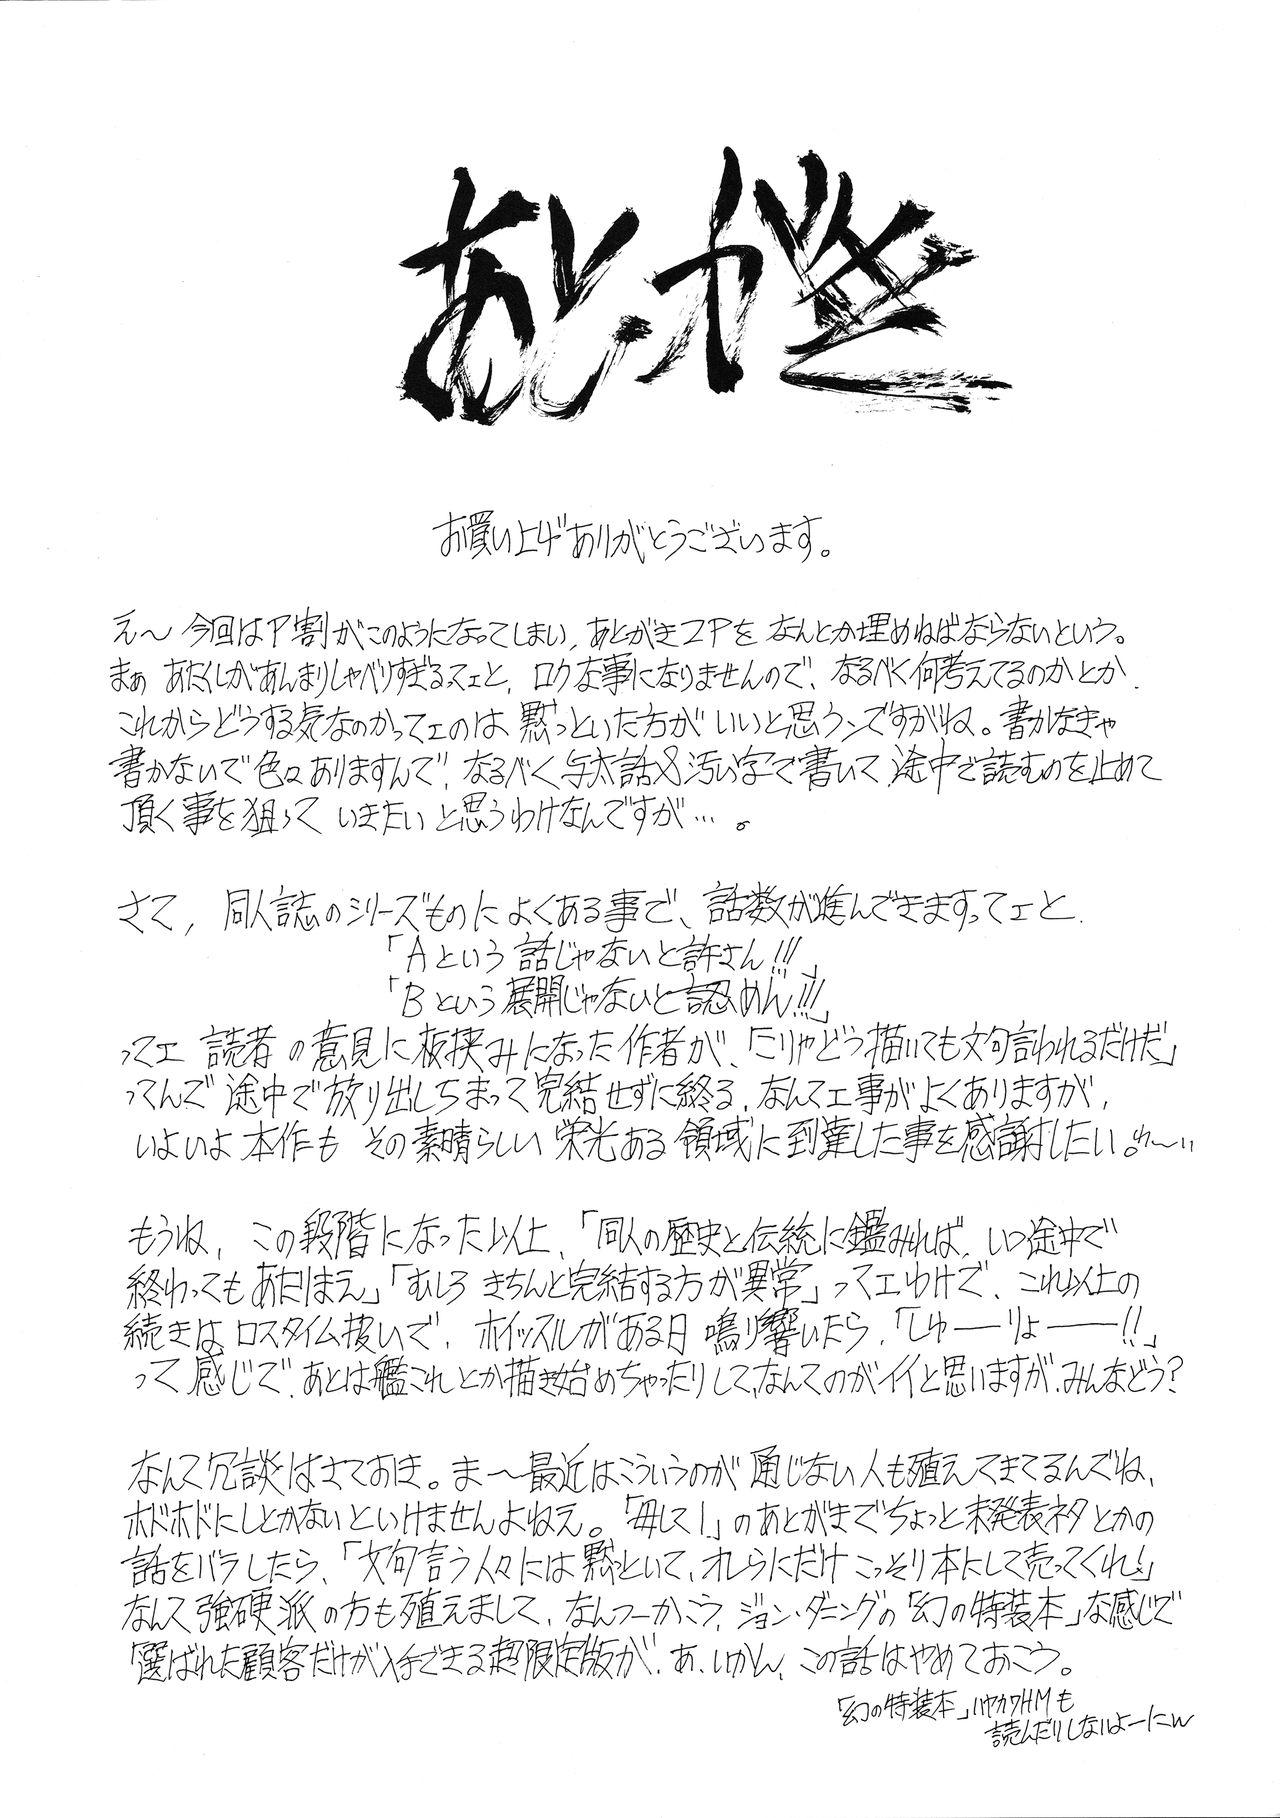 あとがき
お買い上げありがとうございます。
え〜今回はP割がこのようになってしまい、あとがき2Pをなんとか埋めねばならないという。
まぁあたくしがあんまりしゃべりすぎるってェと、ロクな事になりませんので、なるべく何考えてるのかとか
これからどうする気なのかってェのは黙っといた方がいいと思うンですがね。書かなきゃ
書かないで色々ありますんで、なるべく与太話&汚い字で書いて途中で読むのを止めて
頂く事を狙っていきたいと思うわけなんですが…。
さて、同人誌のシリーズものによくある事で、話数が進んできますってェと
「Aという話じゃないと許さん!!!」
「Bという展開じゃないと認めん!!!」
ってェ読者の意見に板挟みになった作者が、「こりゃどう描いても文句言われるだけだ」
ってんで途中で放り出しちまって完結せずに終る、なんてェ事がよくありますが、
いよいよ本作もその素晴らしい栄光ある領域に到達した事を感謝したい。
もうね、この段階になった以上、「同人の歴史と伝統に鑑みれば、いつ途中で
終わってもあたりまえ」「むしろきちんと完結する方が異常」ってェわけで、これ以上の
続きはロスタイム扱いで、ホイッスルがある日鳴り響いたら、「しゅーりょー!!」
って感じで、あとは艦これとか描き始めちゃったりして、なんてのがイイと思いますが、みんなどう?
なんて冗談はさておき。ま〜最近はこういうのが通じない人も殖えてきてるんでね、
ホドホドにしとかないといけませんよねえ。「毎して!」のあとがきでちょっと未発表ネタとかの
話をバラしたら、「文句言う人々には黙っといて、オレらにだけこっそり本にして売ってくれ!」
なんて強硬派の方も殖えまして、なんつーかこう、ジョン・ダニングの「幻の特装本」な感じで
「選ばれた顧客だけが入手できる超限定版が、あ、いかん、この話はやめておこう。
「幻の特装本」ハヤカワHMも
読んだりしないよーにw